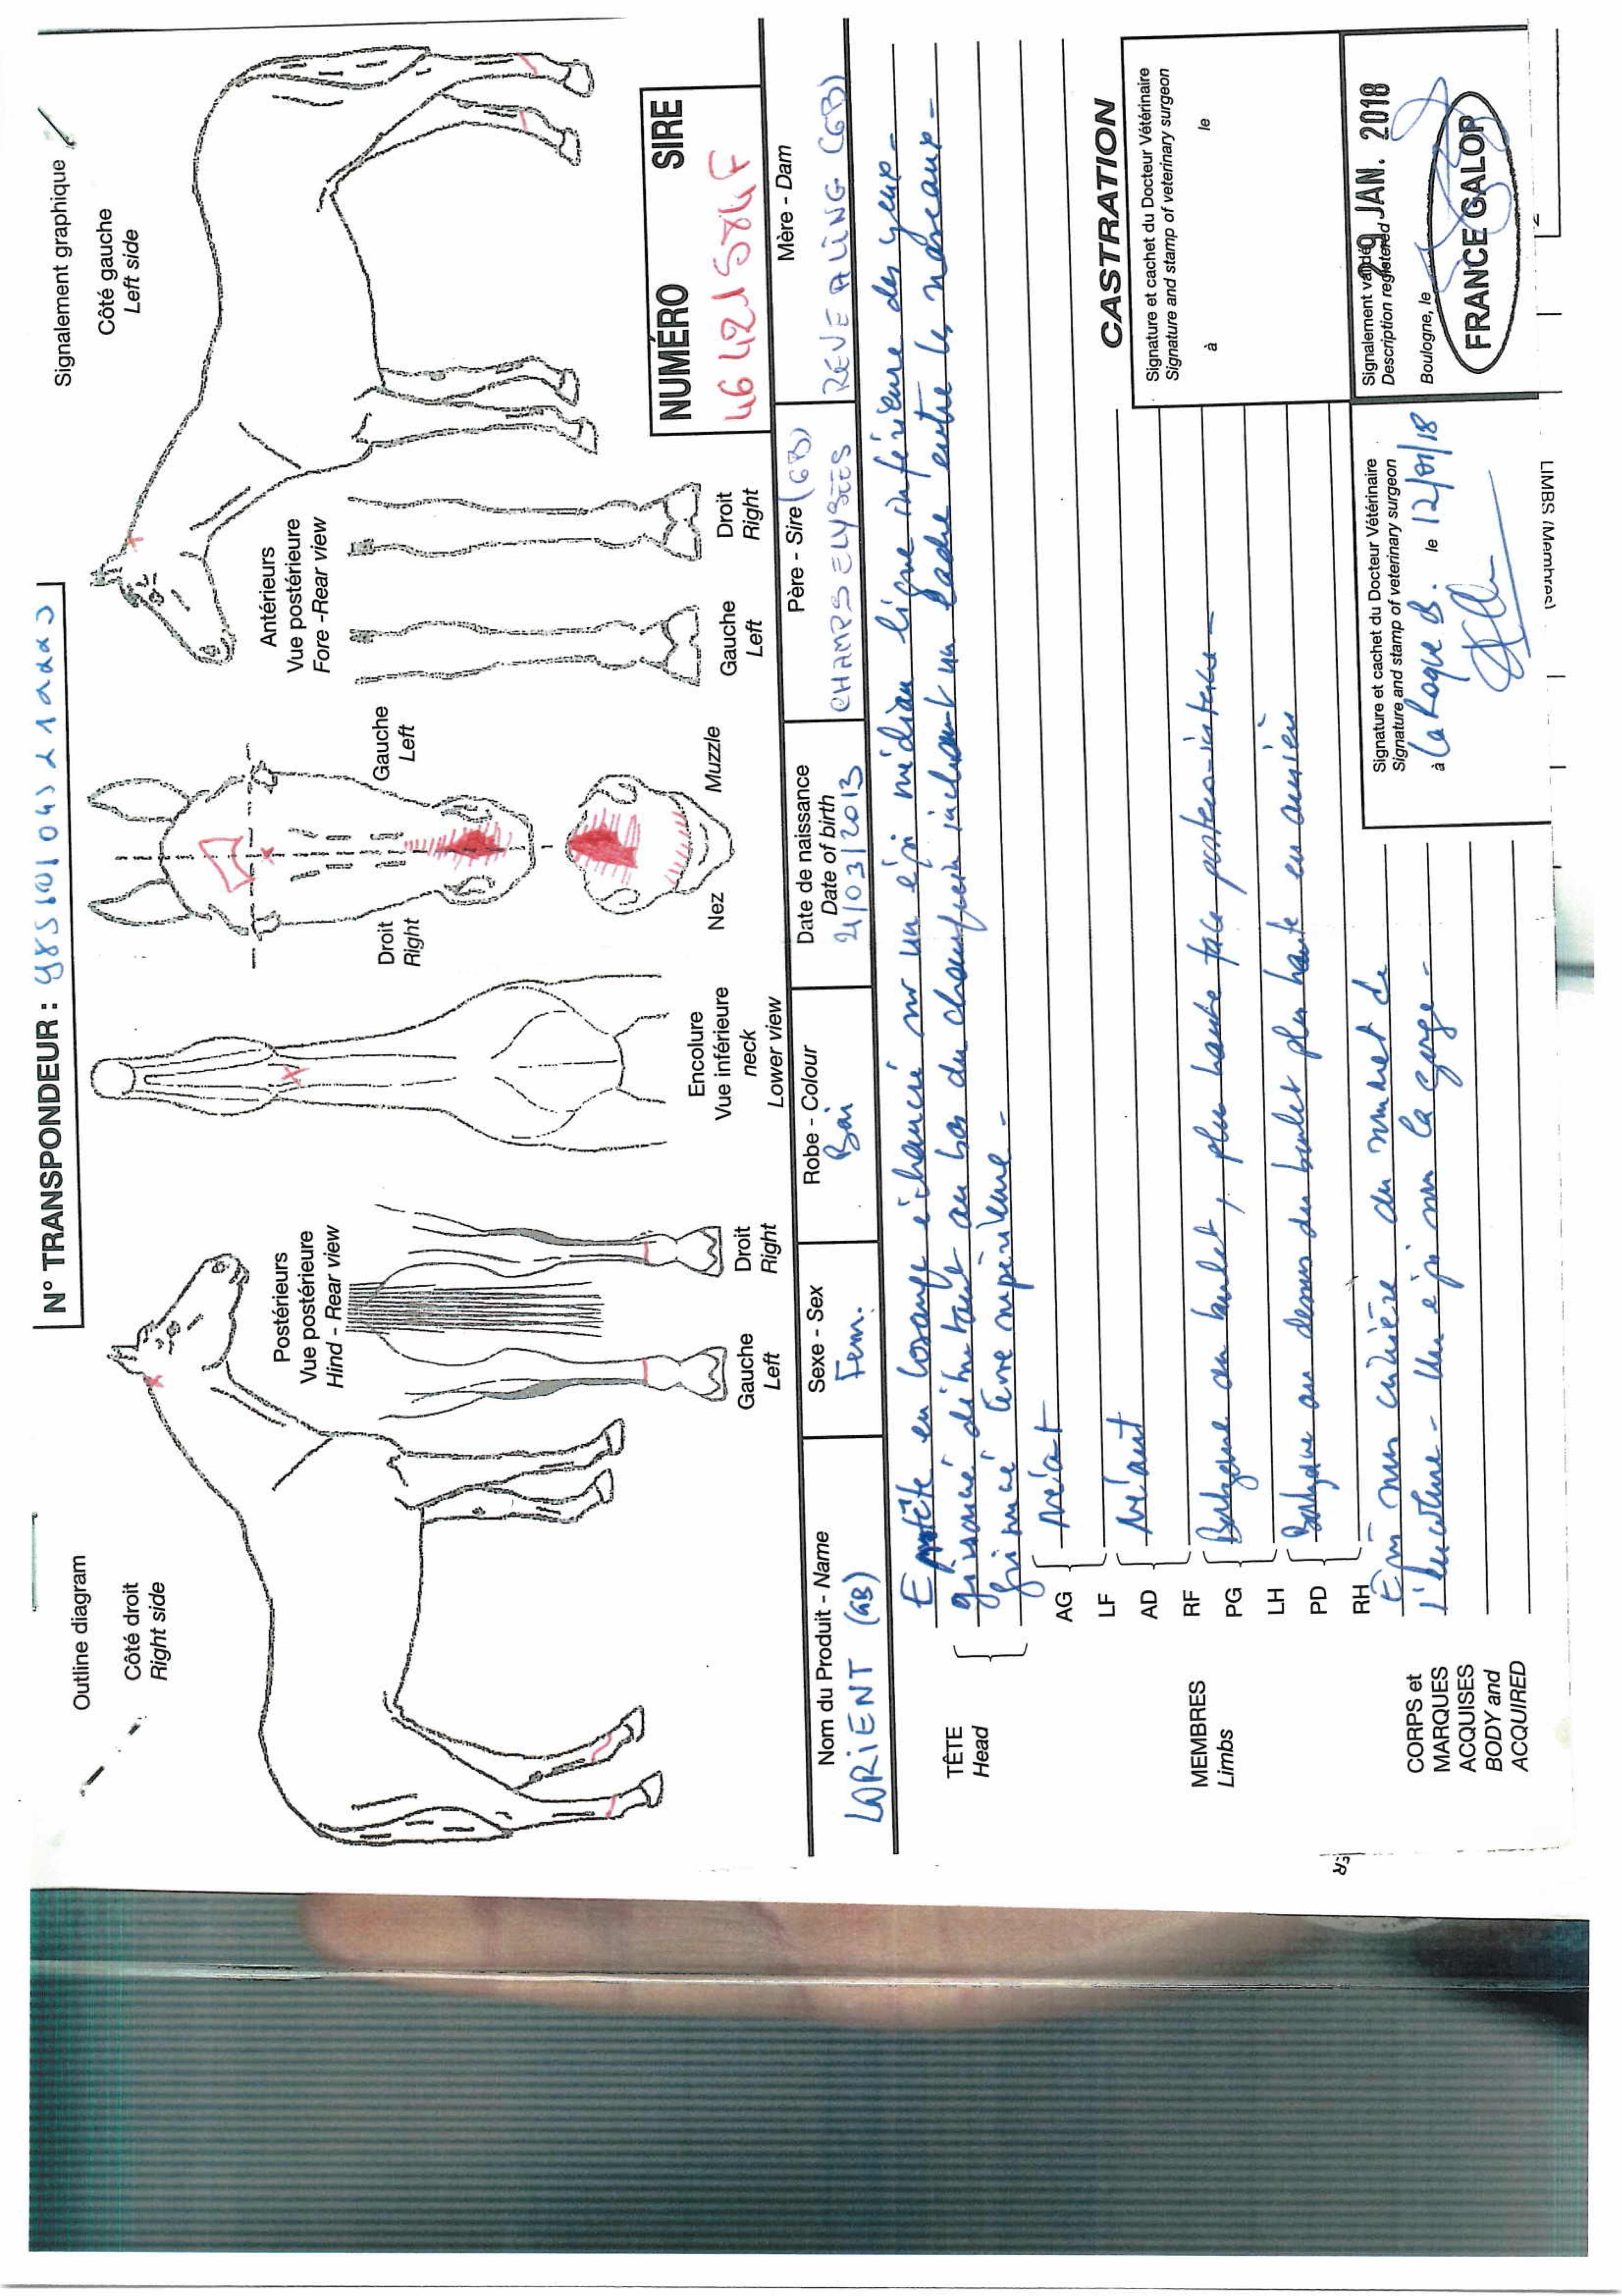 Outline diagram
N° TRANSPONDEUR :
Signalement graphique
Côté droit
Right side
Côté gauche
Left side
Postérieurs
Vue postérieure
Hind - Rear view
Gauche
Left
Droit
Right
Encolure
Vue inférieure
neck
Lower view
Droit
Right
Gauche
Left
Nez
Muzzle
Antérieurs
Vue postérieure
Fore -Rear view
Gauche
Left
Droit
Right
NUMÉRO SIRE
Nom du Produit - Name
LORIENT (GB)
Sexe - Sex
Fem.
Robe - Colour
Bai
Date de naissance
Date of birth
21/03/2013
Père - Sire (GB)
CHAMPS ELYSEES
Mère - Dam
REVEALING (GB)
TÊTE
Head
En tête en losange échancré sur un épi médian ligne inférieure des yeux -
grisonné débutant au bas du chanfrein incluant un ladre entre les naseaux -
grisonné lèvre supérieure -
MEMBRES
Limbs
AG
LF
Néant
AD
RF
Néant
PG
LH
Balzane au boulet, plus haute face postéro-interne -
PD
RH
Balzane au dessus du boulet plus haute en arrière
CORPS et
MARQUES
ACQUISES
BODY and
ACQUIRED
Epi sur crinière au sommet de
l'encolure - Un épi sur la gorge -
CASTRATION
Signature et cachet du Docteur Vétérinaire
Signature and stamp of veterinary surgeon
à le
Signature et cachet du Docteur Vétérinaire
Signature and stamp of veterinary surgeon
à La Roque B. le 12/01/18
Signalement validé
Description registered
JAN. 2018
Boulogne, le
FRANCE GALOP
LIMBS (Membres)